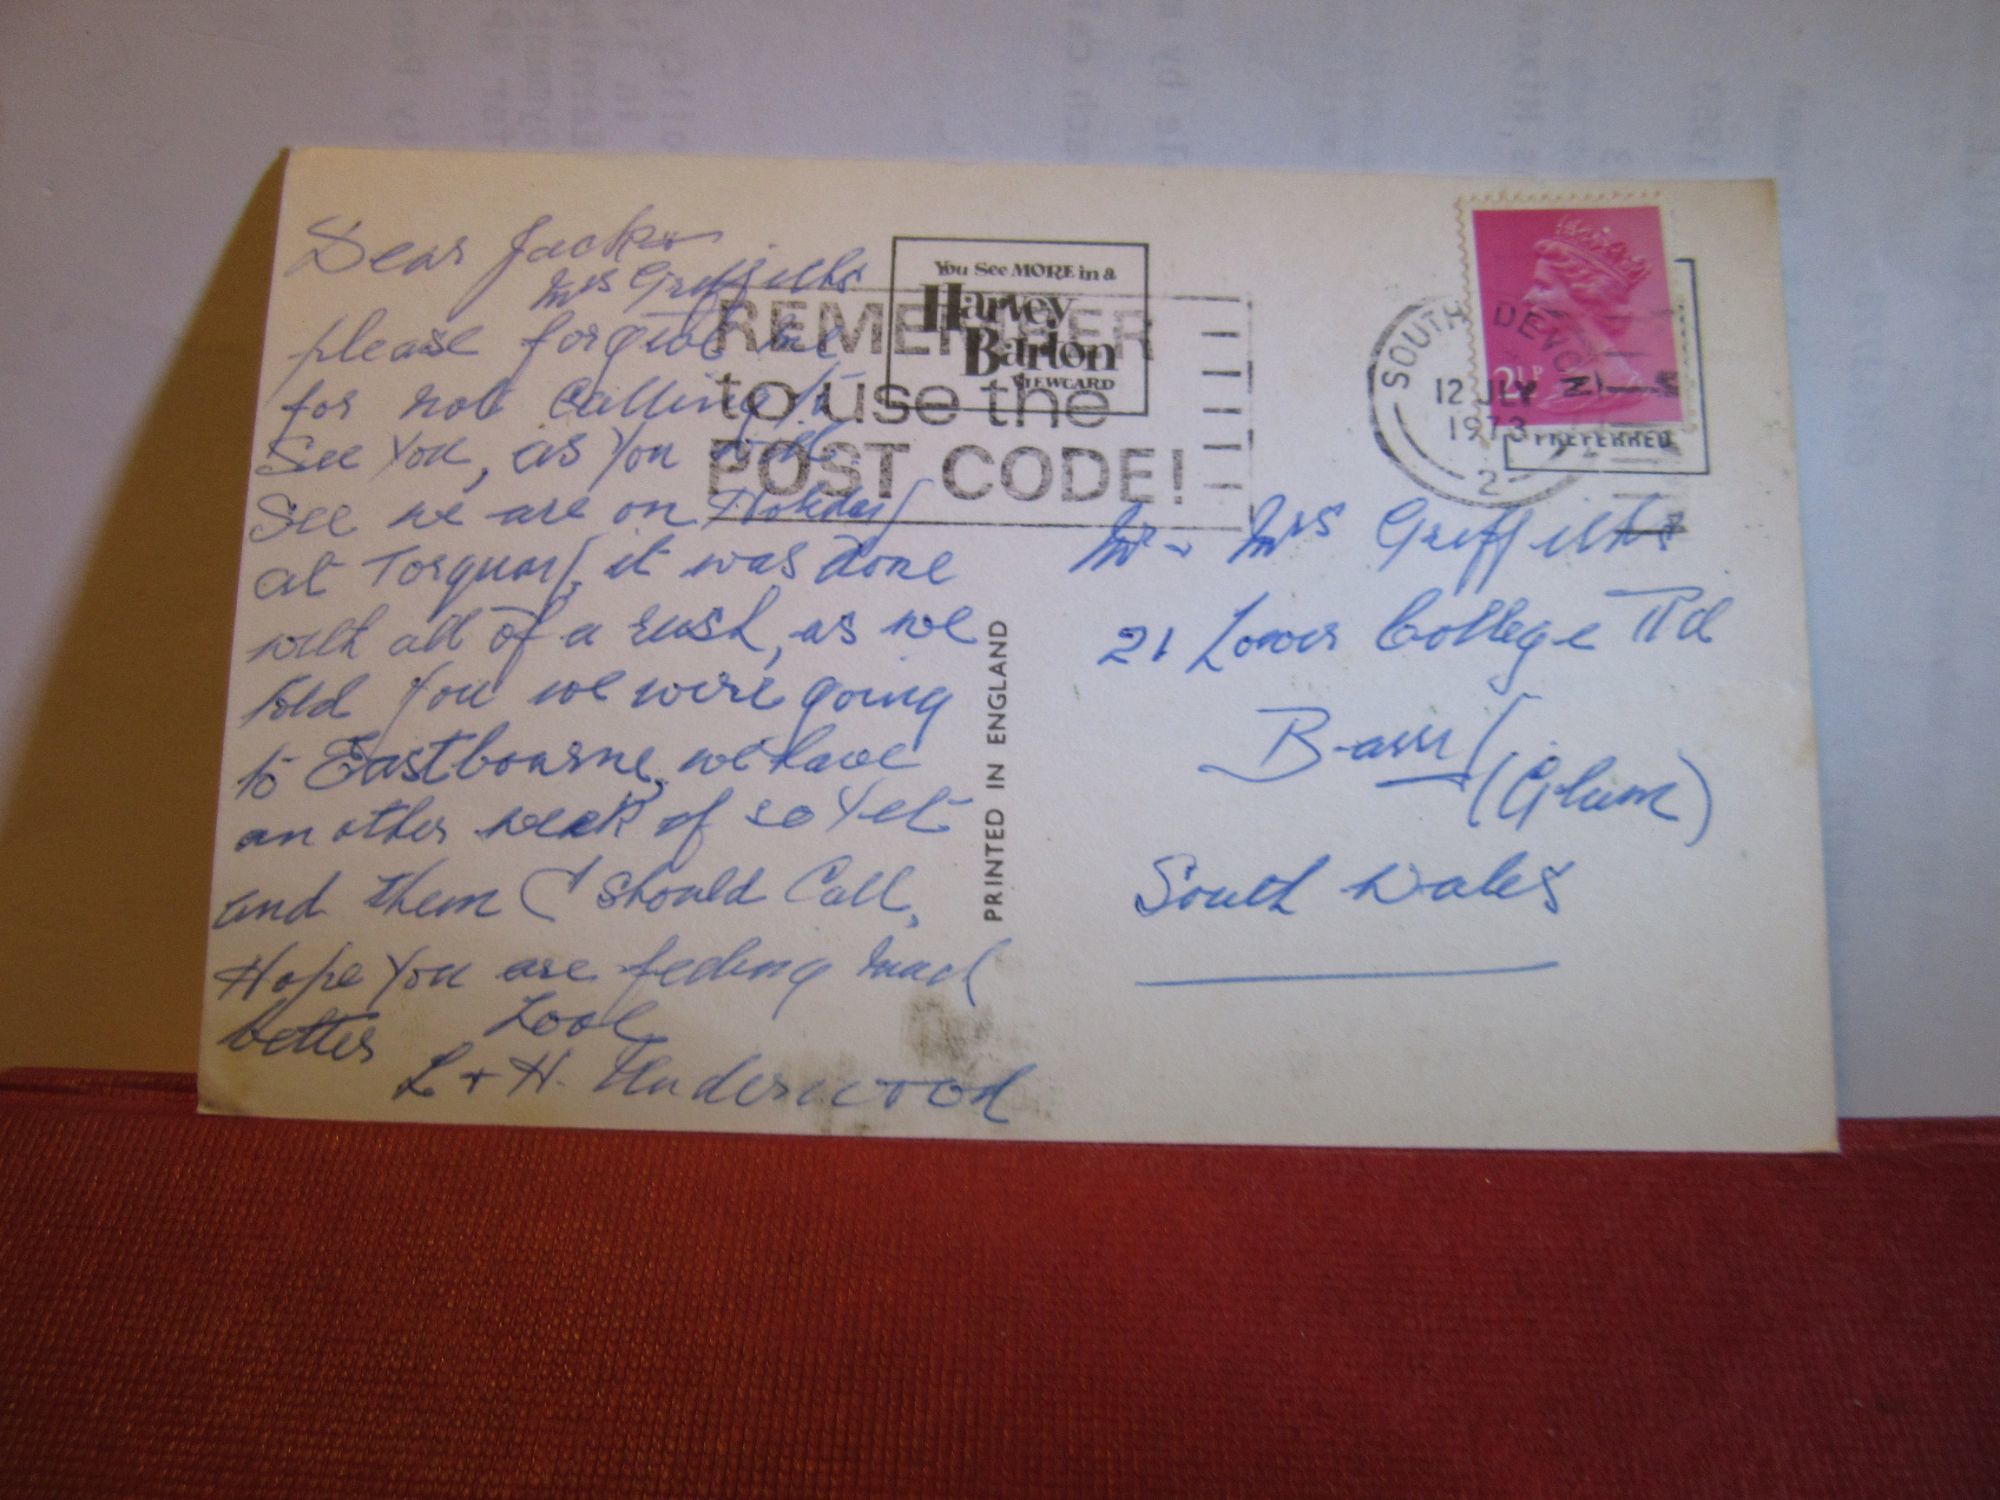 Dear Jack &
Mrs Griffiths
please forgive me
for not calling to
see You, as You will
see we are on Holiday
at Torquay, it was done
with all of a rush, as we
told you we were going
to Eastbourne, we have
another week of so Yet
and them I should Call,
Hope You are feeling much
better Love
L + H. Underwood
You See MORE in a
Harvey
Barton
VIEWCARD
REMEMBER
to use the
POST CODE!
PRINTED IN ENGLAND
SOUTH DEVON
12 JLY
1973
2
2½P
PREFERRED
Mr & Mrs Griffiths
21 Lower College Rd
Barry
(Glam)
South Wales